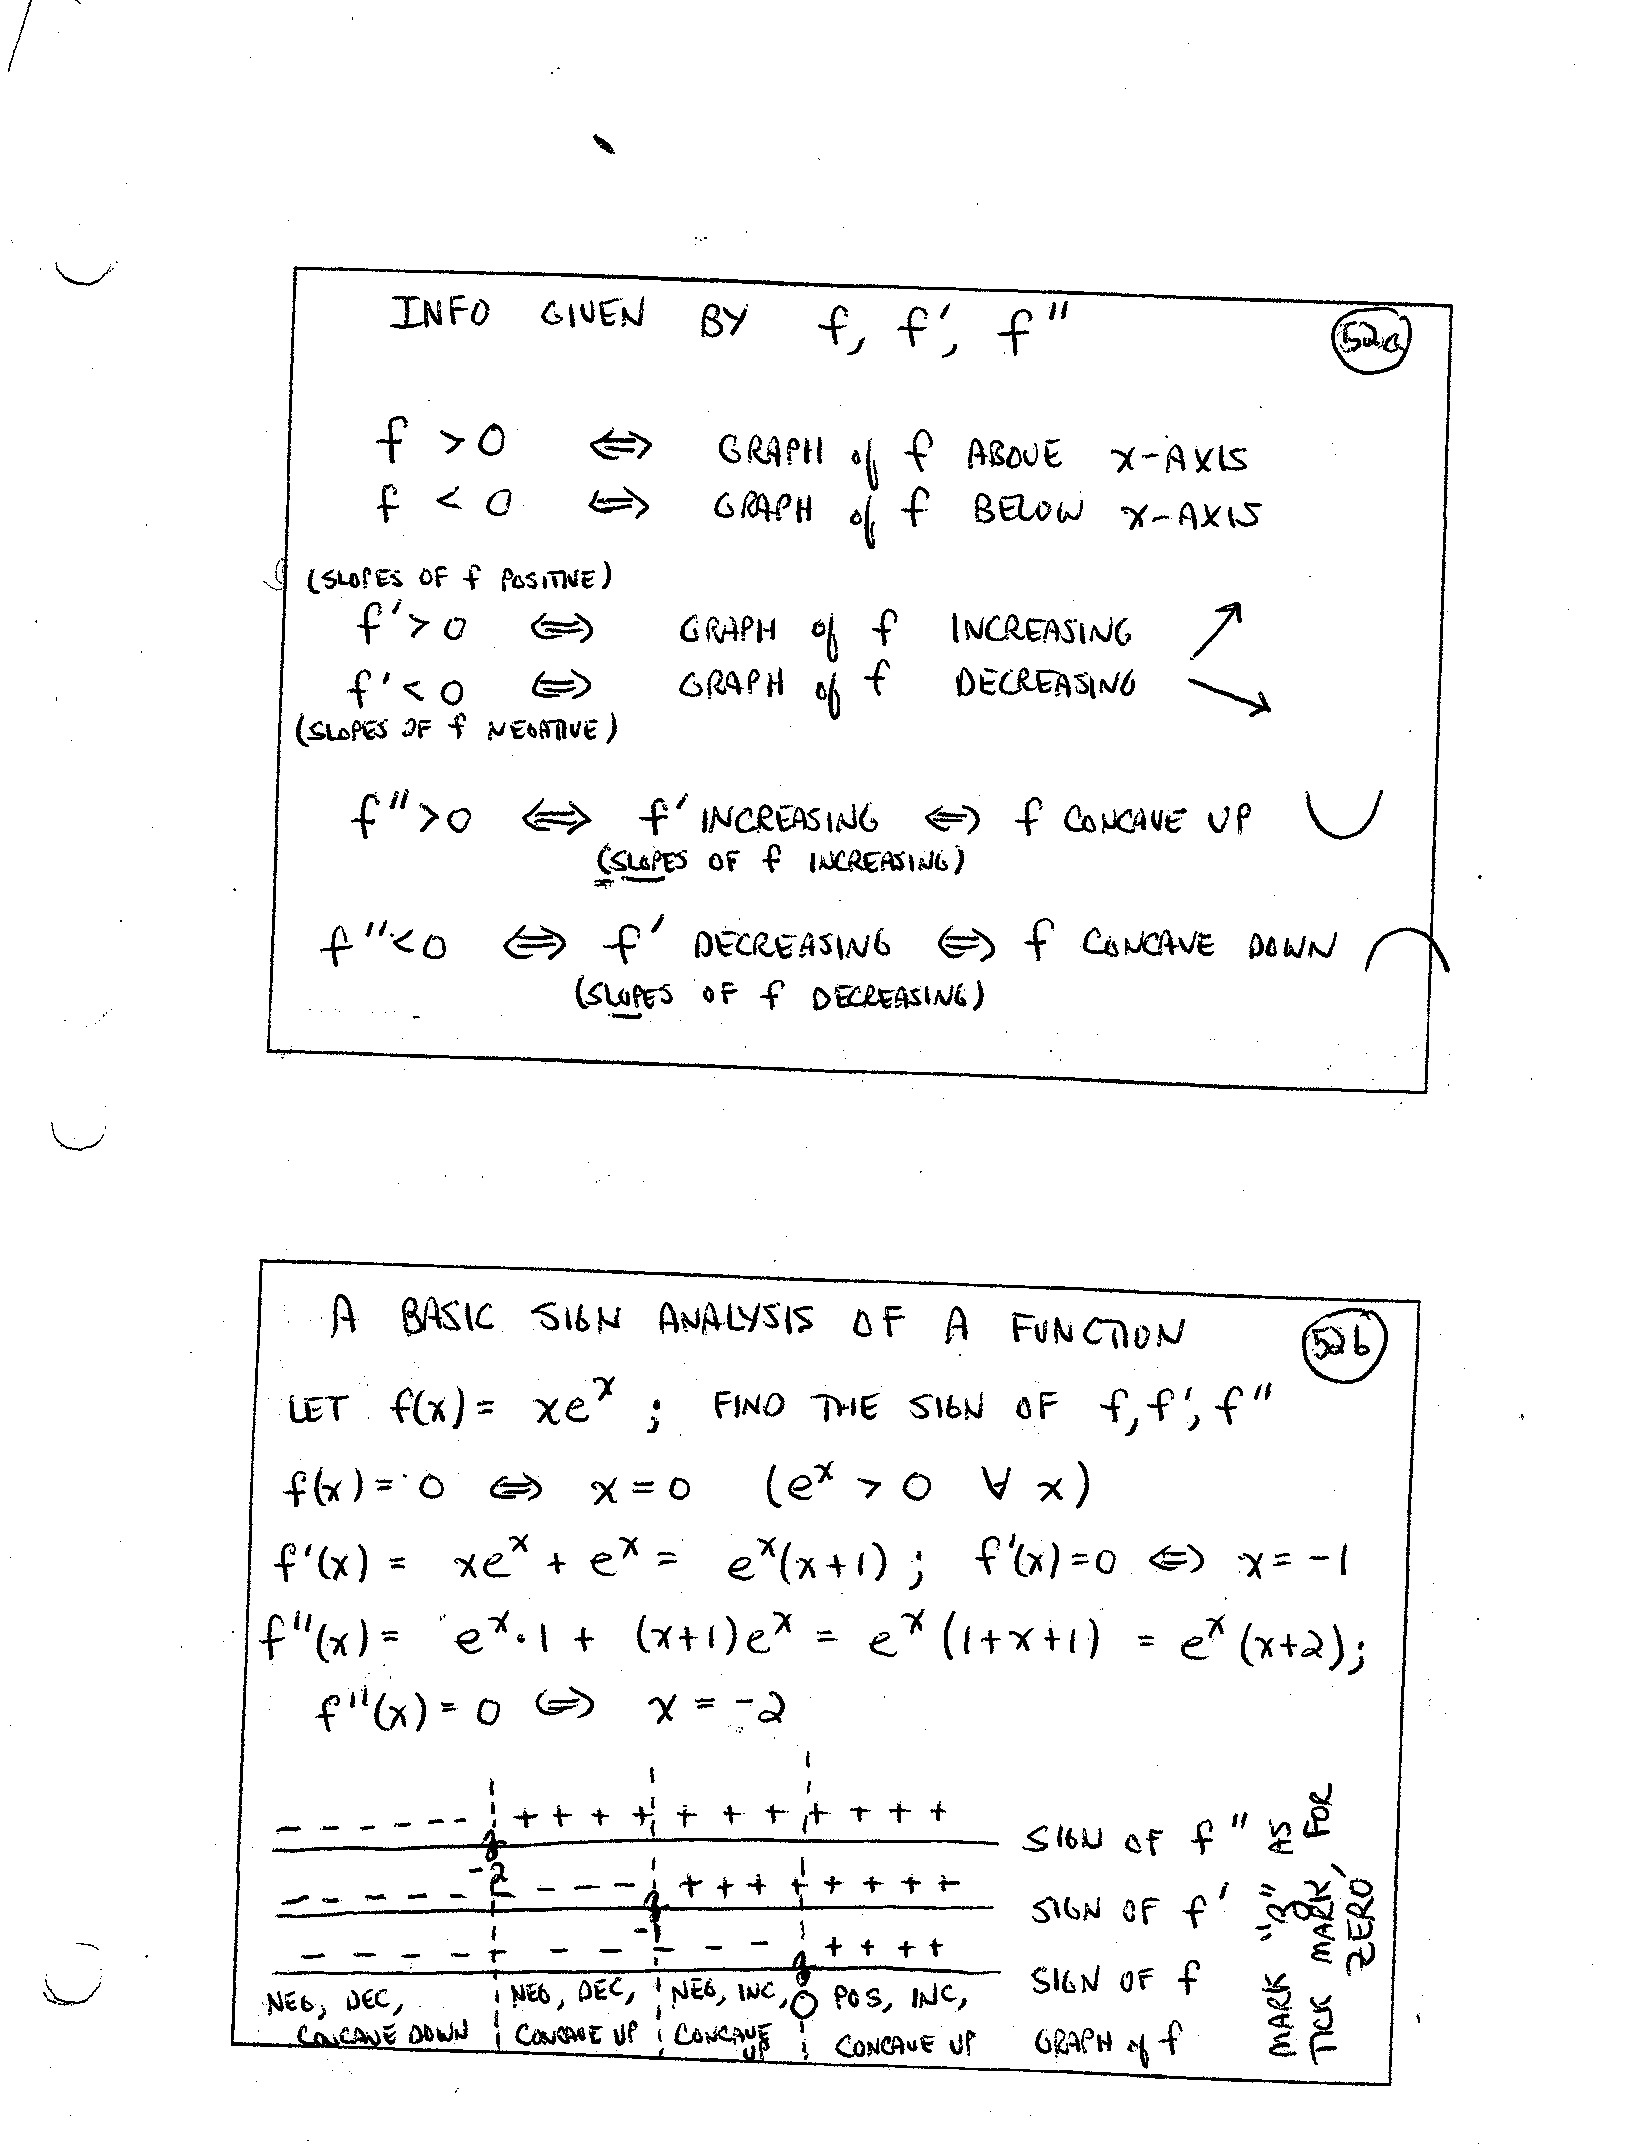 INFO GIVEN BY f, f', f"
52a
f > 0 ⇔ GRAPH of f ABOVE x-AXIS
f < 0 ⇔ GRAPH of f BELOW x-AXIS
(SLOPES OF f POSITIVE)
f' > 0 ⇔ GRAPH of f INCREASING ↗
f' < 0 ⇔ GRAPH of f DECREASING ↘
(SLOPES OF f NEGATIVE)
f" > 0 ⇔ f' INCREASING ⇔ f CONCAVE UP
(SLOPES OF f INCREASING)
f" < 0 ⇔ f' DECREASING ⇔ f CONCAVE DOWN
(SLOPES OF f DECREASING)
A BASIC SIGN ANALYSIS OF A FUNCTION
52b
LET f(x) = xe^x ; FIND THE SIGN OF f, f', f"
f(x) = 0 ⇔ x = 0 (e^x > 0 ∀ x)
f'(x) = xe^x + e^x = e^x(x+1) ; f'(x) = 0 ⇔ x = -1
f"(x) = e^x · 1 + (x+1)e^x = e^x (1+x+1) = e^x (x+2);
f"(x) = 0 ⇔ x = -2
- - - - - - - + + + + + + + + + + + SIGN OF f"
-2
- - - - - - - - - - + + + + + + + + SIGN OF f'
-1
- - - - - - - - - - - + + + + SIGN OF f
0
NEG, DEC, NEG, DEC, NEG, INC, POS, INC,
CONCAVE DOWN CONCAVE UP CONCAVE UP CONCAVE UP GRAPH of f
MARK "8" AS
TICK MARK, FOR
ZERO